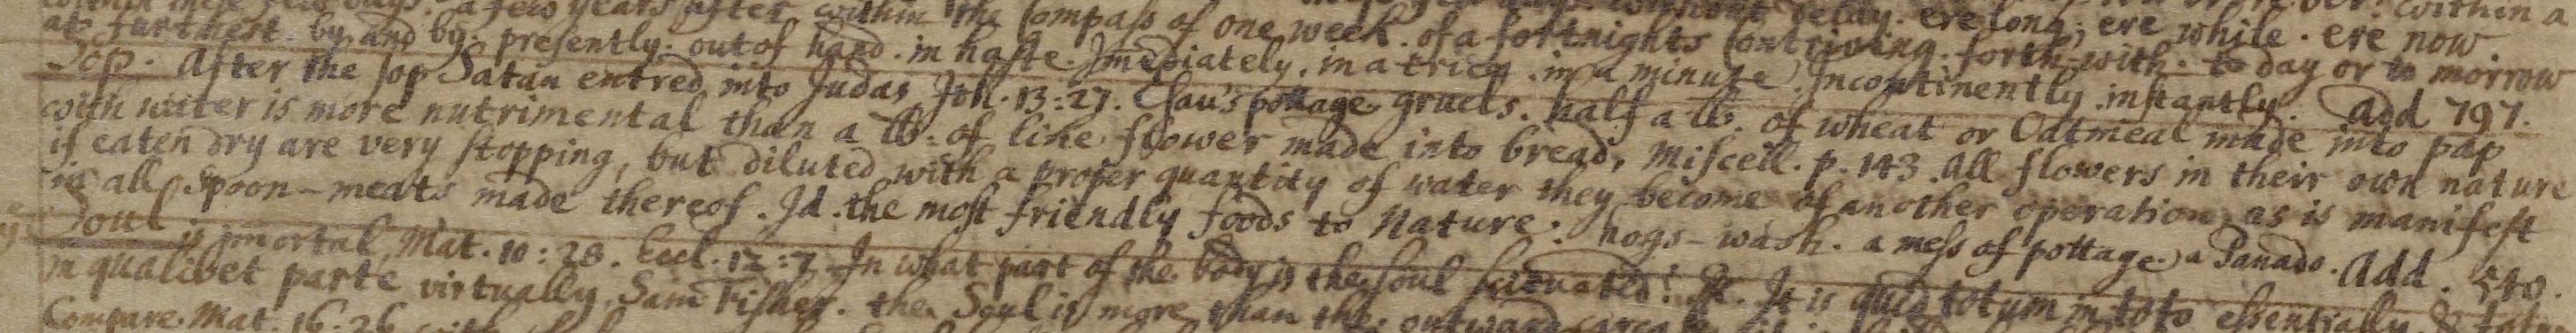 a few years after within the compass of one week. of a fortnights contriving. forth with. to day or to morrow
at furthest. by and by. presently. out of hand. in haste. Imediately. in a trice. in a minute. Incontinently. instantly. Add 797.
Sop. After the sop Satan entred into Judas Joh. 13:27. Esau's pottage. gruels. half a lb. of wheat or Oatmeal made into pap
with water is more nutrimental than a lb. of fine flower made into bread, Miscell. p. 143. All flowers in their own nature
if eaten dry are very stopping, but diluted with a proper quantity of water they become of another operation, as is manifest
in all Spoon-meats made thereof. Id. the most friendly foods to Nature. hogs-wash. a mess of pottage. a Panado. Add. 540.
Soul is imortal, Mat. 10:28. Eccl. 12:7. In what part of the body is the soul scituated? R. It is quid totum in toto essentially &
in qualibet parte virtually, Sam Fisher. the Soul is more than the outward
Compare Mat. 16.26 with